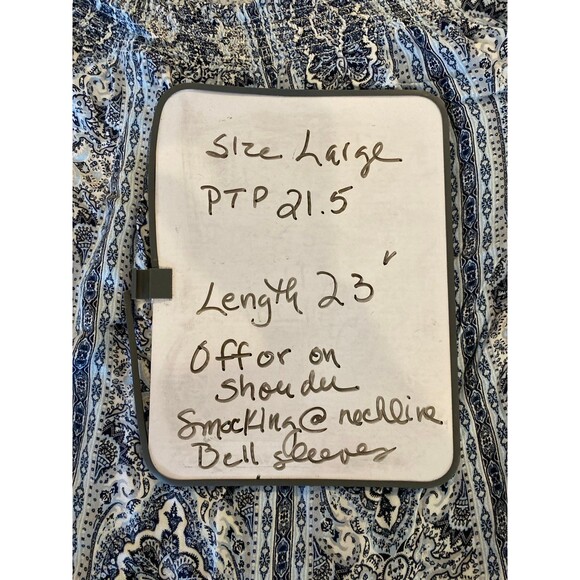 Size Large
PTP 21.5
Length 23"
Off or on
Shoulder
Smocking @ neckline
Bell sleeves